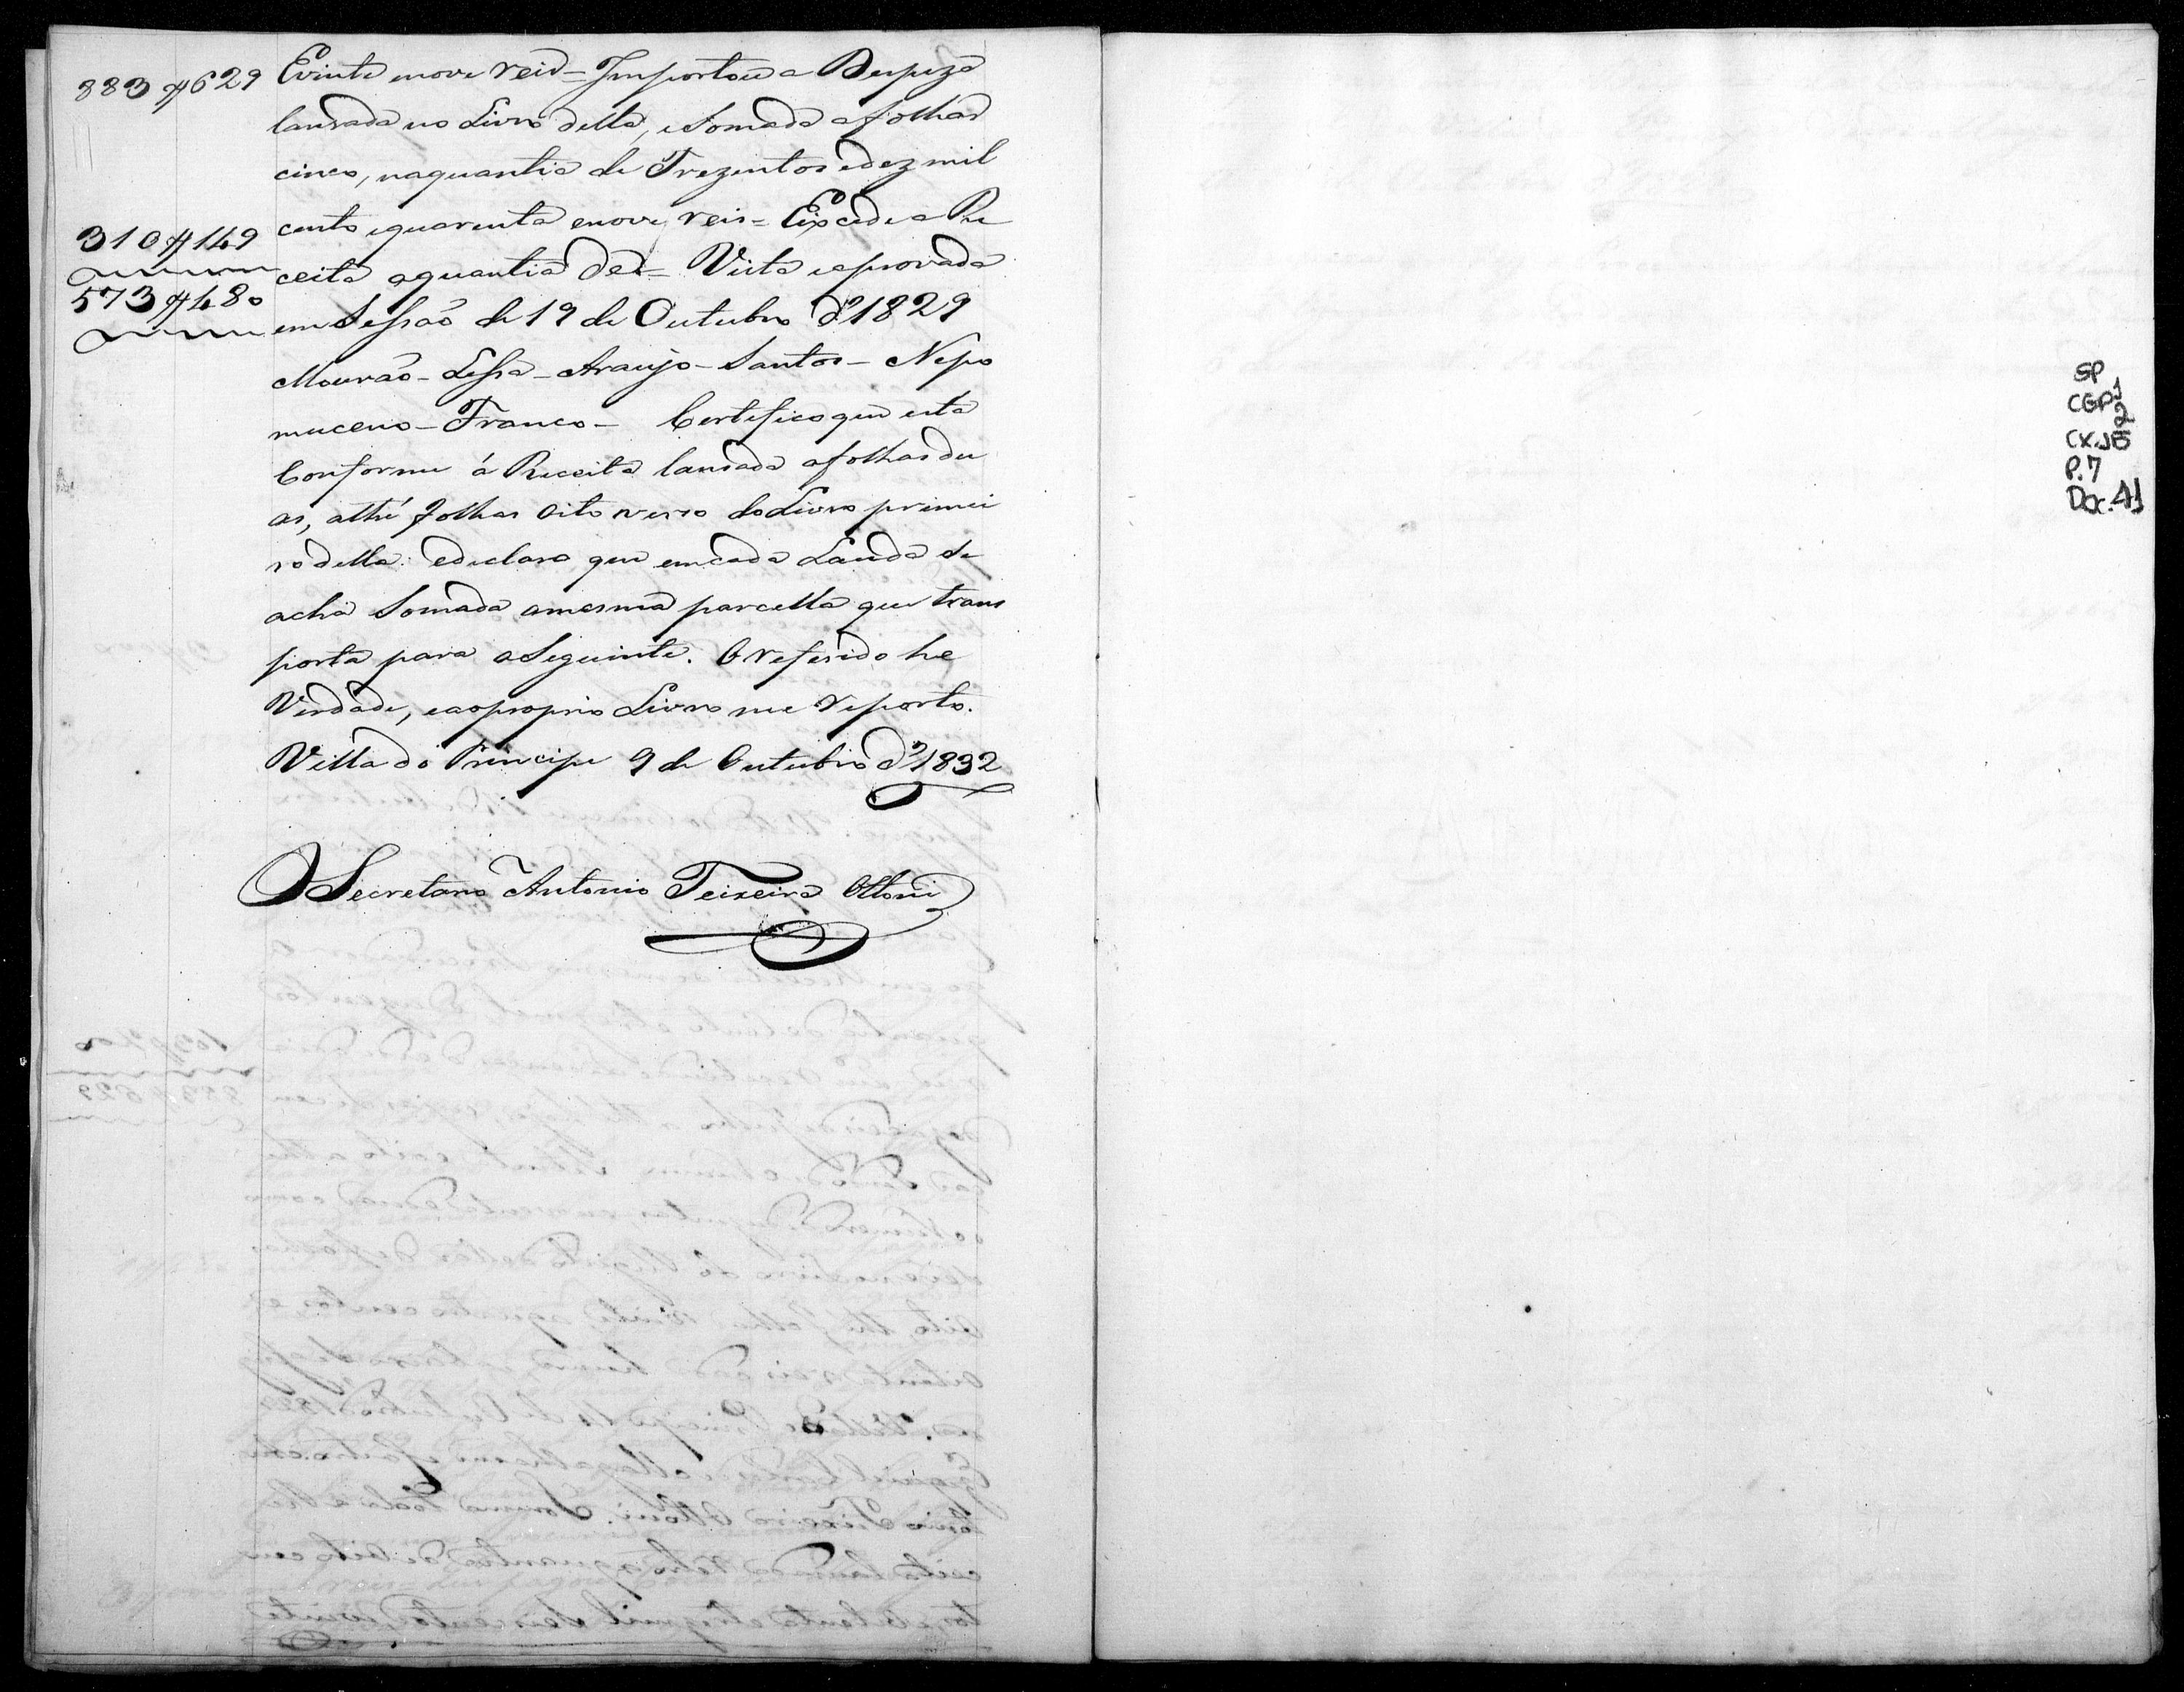 883$629 Evinte enove reis = Importou a Despeza
lansada no Livro della, e somada a folhas
cinco, naquantia de Trezentos edez mil
310$149 cento equarenta enove reis = Excede a Re
ceita aquantia de = Vista e aprovada
573$480
em Sessaõ de 19 de Outubro d'1829
Mouraõ - Lessa - Araujo - Santos - Nepo
muceno - Franco - Certifico que esta
Conforme á Receita lansada afolhas du
as, athé folhas oito verso do Livro primei
ro della: edeclaro que emcada Lauda se
acha Somada amesma parcella que trans
porta para aSeguinte. O referido he
Verdade, eaoproprio Livro me reporto.
Villa do Principe 9 de Outubro d'1832
O Secretario Antonio Teixeira Ottoni
SP
CGP1
2
CX.JB
P.7
Doc.41